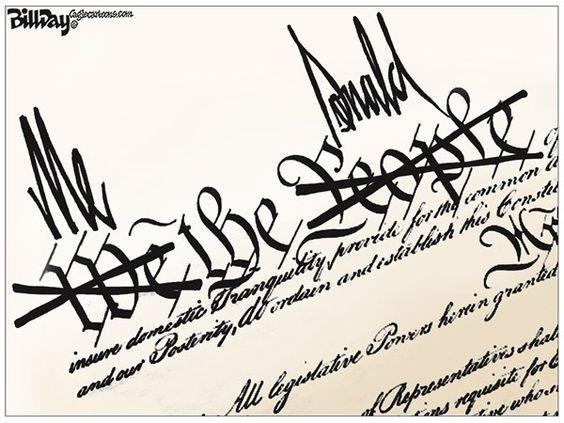 Bill Day ©Caglecartoons.com
Me Donald
We the People
insure domestic Tranquility, provide for the common
and our Posterity, do ordain and establish this
All legislative Powers herein granted
of Representatives
requisite for